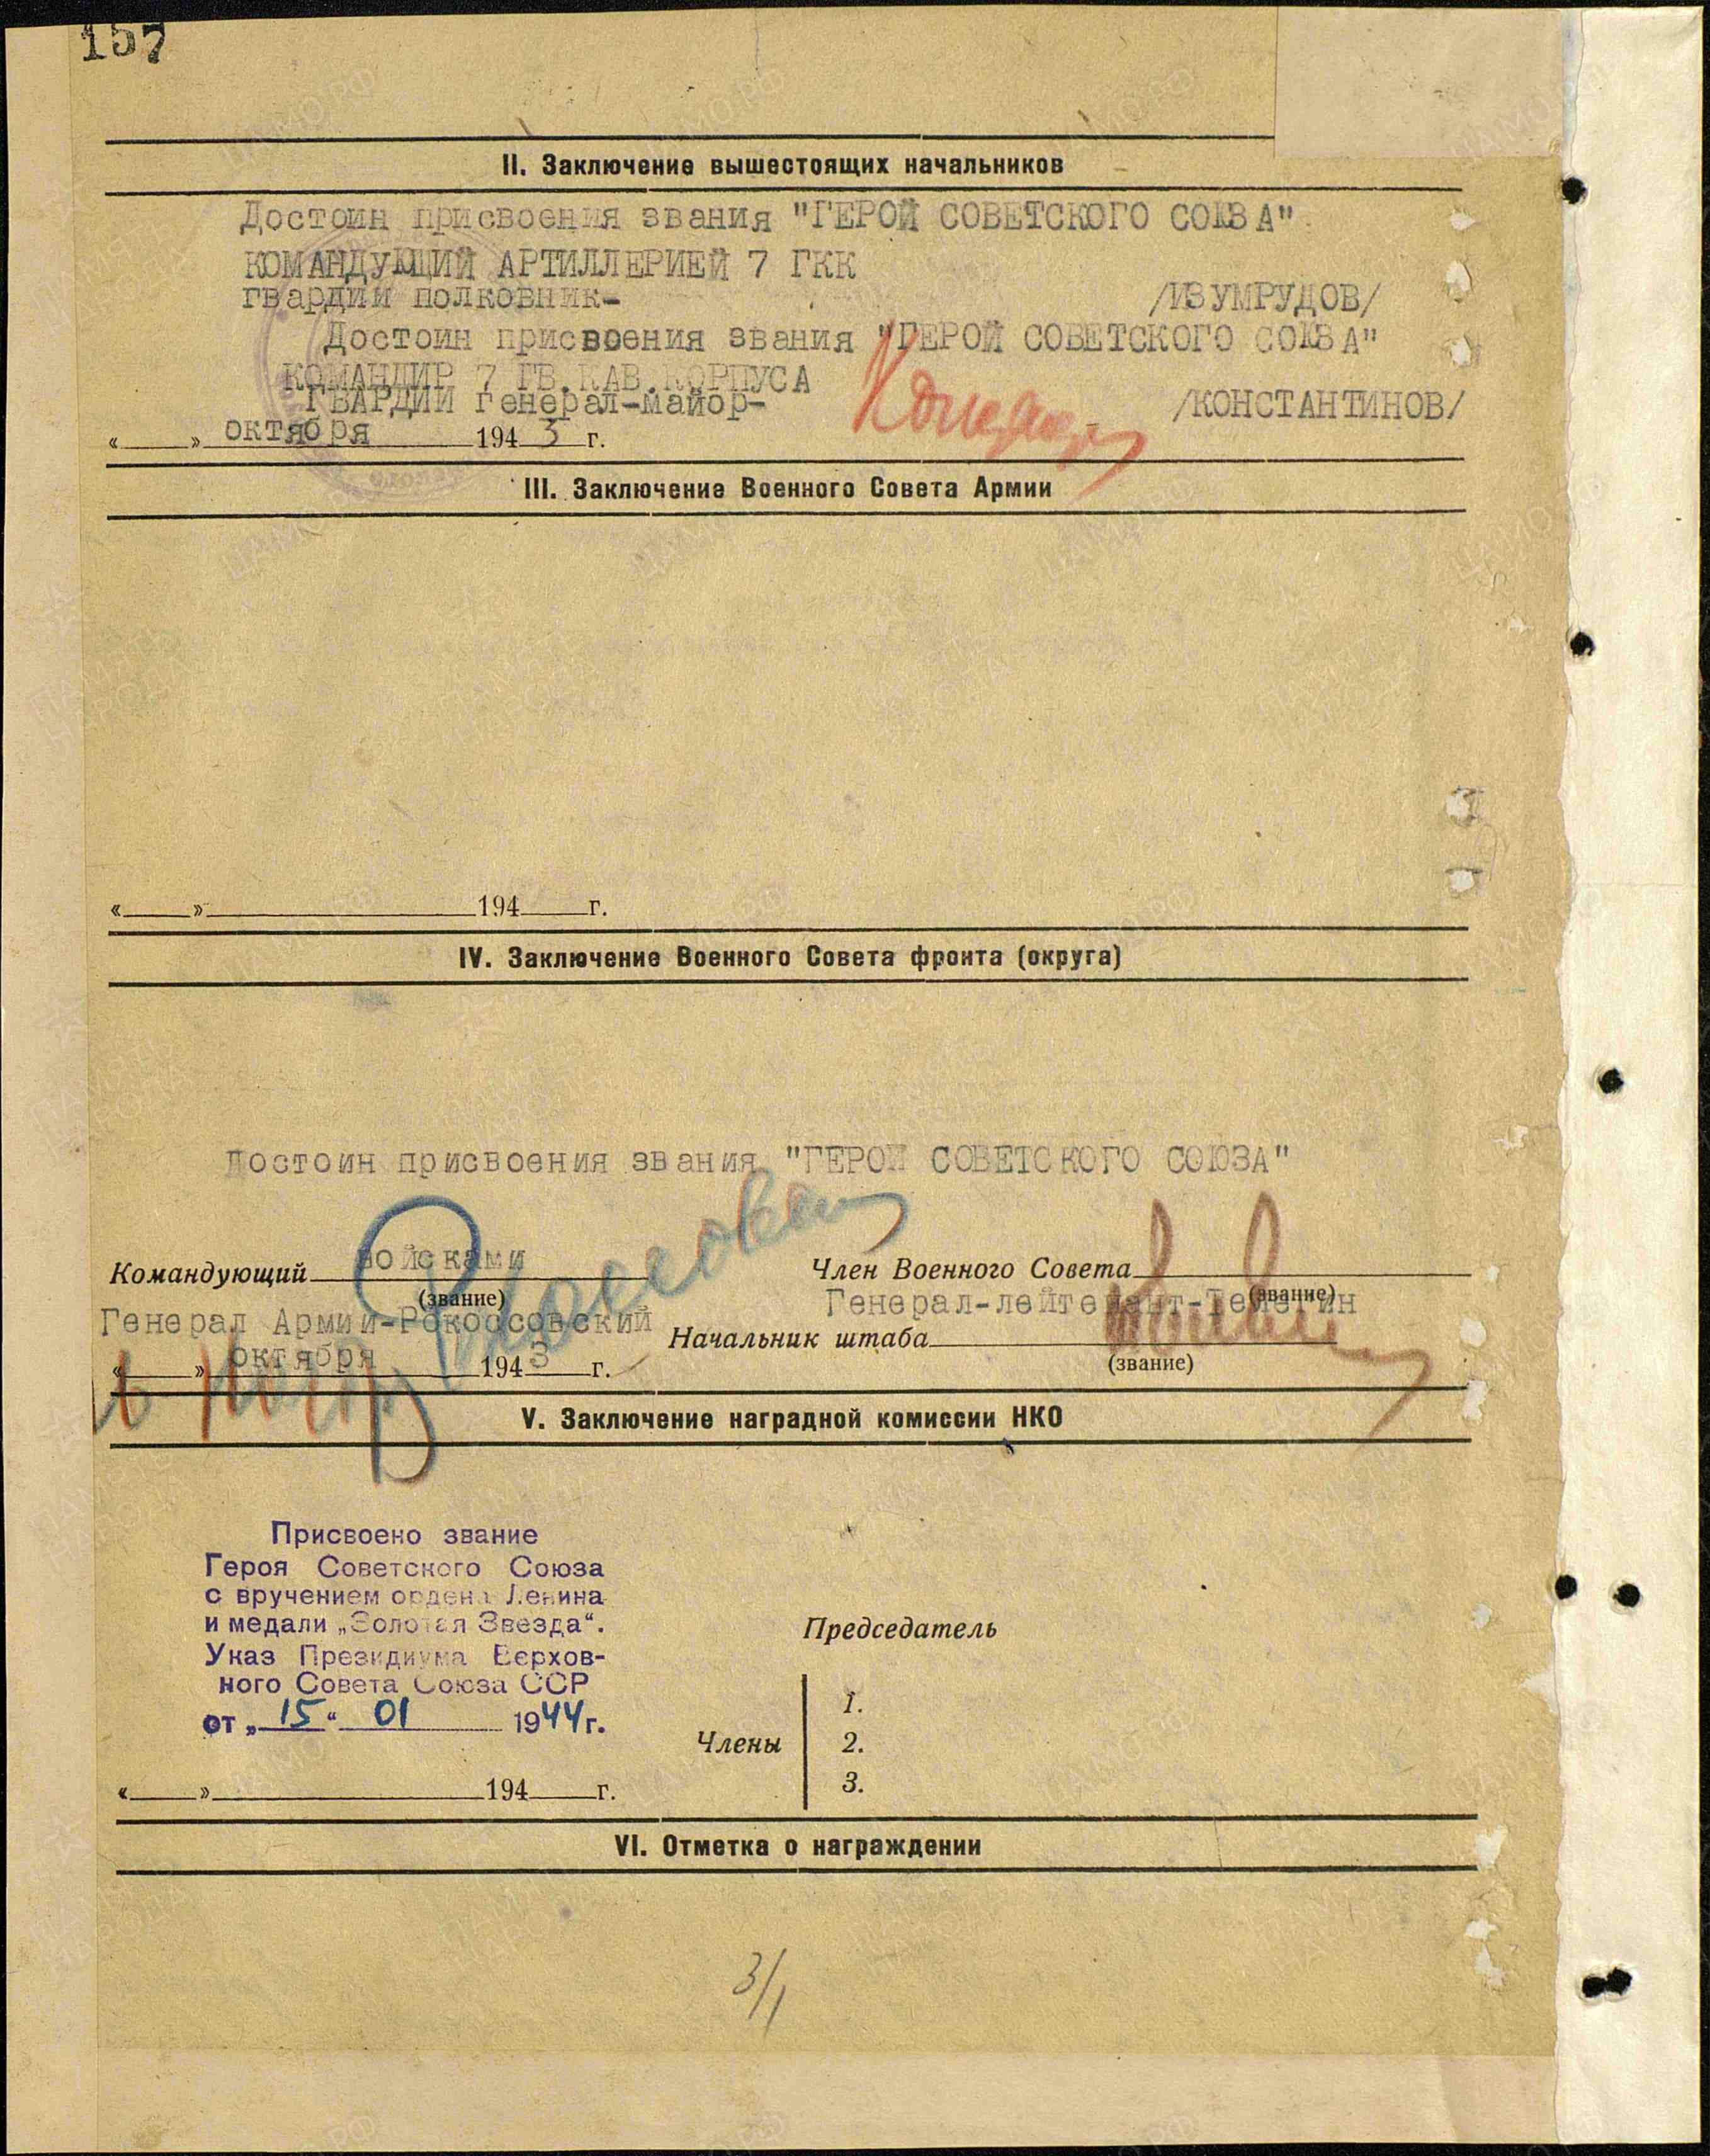 157
II. Заключение вышестоящих начальников
Достоин присвоения звания "ГЕРОЙ СОВЕТСКОГО СОЮЗА"
КОМАНДУЮЩИЙ АРТИЛЛЕРИЕЙ 7 ГКК
гвардии полковник- /ИЗУМРУДОВ/
Достоин присвоения звания "ГЕРОЙ СОВЕТСКОГО СОЮЗА"
КОМАНДИР 7 ГВ.КАВ.КОРПУСА
ГВАРДИИ генерал-майор- /КОНСТАНТИНОВ/
« » октября 1943 г.
III. Заключение Военного Совета Армии
« » 194 г.
IV. Заключение Военного Совета фронта (округа)
Достоин присвоения звания "ГЕРОЙ СОВЕТСКОГО СОЮЗА"
Командующий войсками Член Военного Совета
(звание) (звание)
Генерал Армии-Рокоссовский Генерал-лейтенант-Телегин
Начальник штаба
(звание)
« » октября 1943 г.
V. Заключение наградной комиссии НКО
Присвоено звание
Героя Советского Союза
с вручением ордена Ленина
и медали „Золотая Звезда“.
Указ Президиума Верхов-
ного Совета Союза ССР
от „15“ 01 1944г.
Председатель
Члены
1.
2.
3.
« » 194 г.
VI. Отметка о награждении
3/1